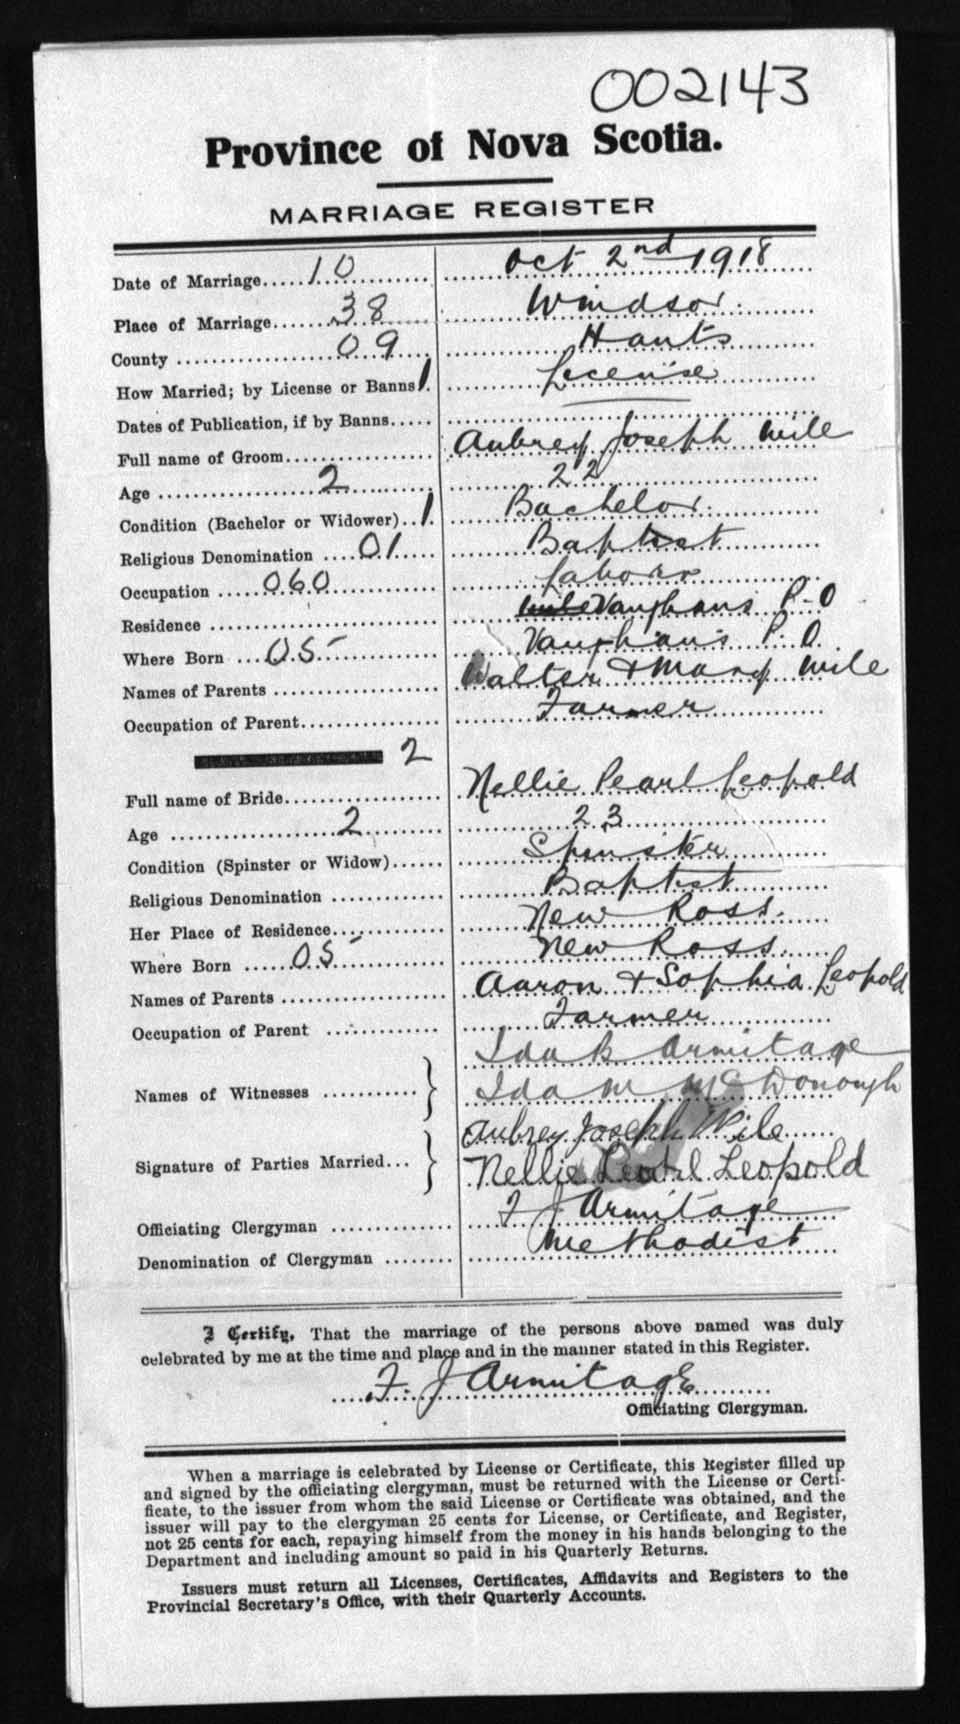 002143
Province of Nova Scotia.
MARRIAGE REGISTER
Date of Marriage 10 Oct 2nd 1918
Place of Marriage 38 Windsor.
County 09 Hants
How Married; by License or Banns 1. License
Dates of Publication, if by Banns
Full name of Groom Aubrey Joseph Wile
Age 2 22
Condition (Bachelor or Widower) 1. Bachelor.
Religious Denomination 01 Baptist
Occupation 060 Laborer
Residence Vaughans P-O
Where Born 05 Vaughans P.O.
Names of Parents Walter + Mary Wile
Occupation of Parent Farmer
2
Full name of Bride Nellie Pearl Leopold
Age 2 23
Condition (Spinster or Widow) Spinster
Religious Denomination Baptist
Her Place of Residence New Ross.
Where Born 05 New Ross.
Names of Parents Aaron + Sophia Leopold
Occupation of Parent Farmer
Names of Witnesses Ida B Armitage
Ida M McDonough
Signature of Parties Married Aubrey Joseph Wile
Nellie Pearl Leopold
Officiating Clergyman F J Armitage
Denomination of Clergyman Methodist
I Certify, That the marriage of the persons above named was duly
celebrated by me at the time and place and in the manner stated in this Register.
F. J Armitage
Officiating Clergyman.
When a marriage is celebrated by License or Certificate, this Register filled up
and signed by the officiating clergyman, must be returned with the License or Certi-
ficate, to the issuer from whom the said License or Certificate was obtained, and the
issuer will pay to the clergyman 25 cents for License, or Certificate, and Register,
not 25 cents for each, repaying himself from the money in his hands belonging to the
Department and including amount so paid in his Quarterly Returns.
Issuers must return all Licenses, Certificates, Affidavits and Registers to the
Provincial Secretary's Office, with their Quarterly Accounts.